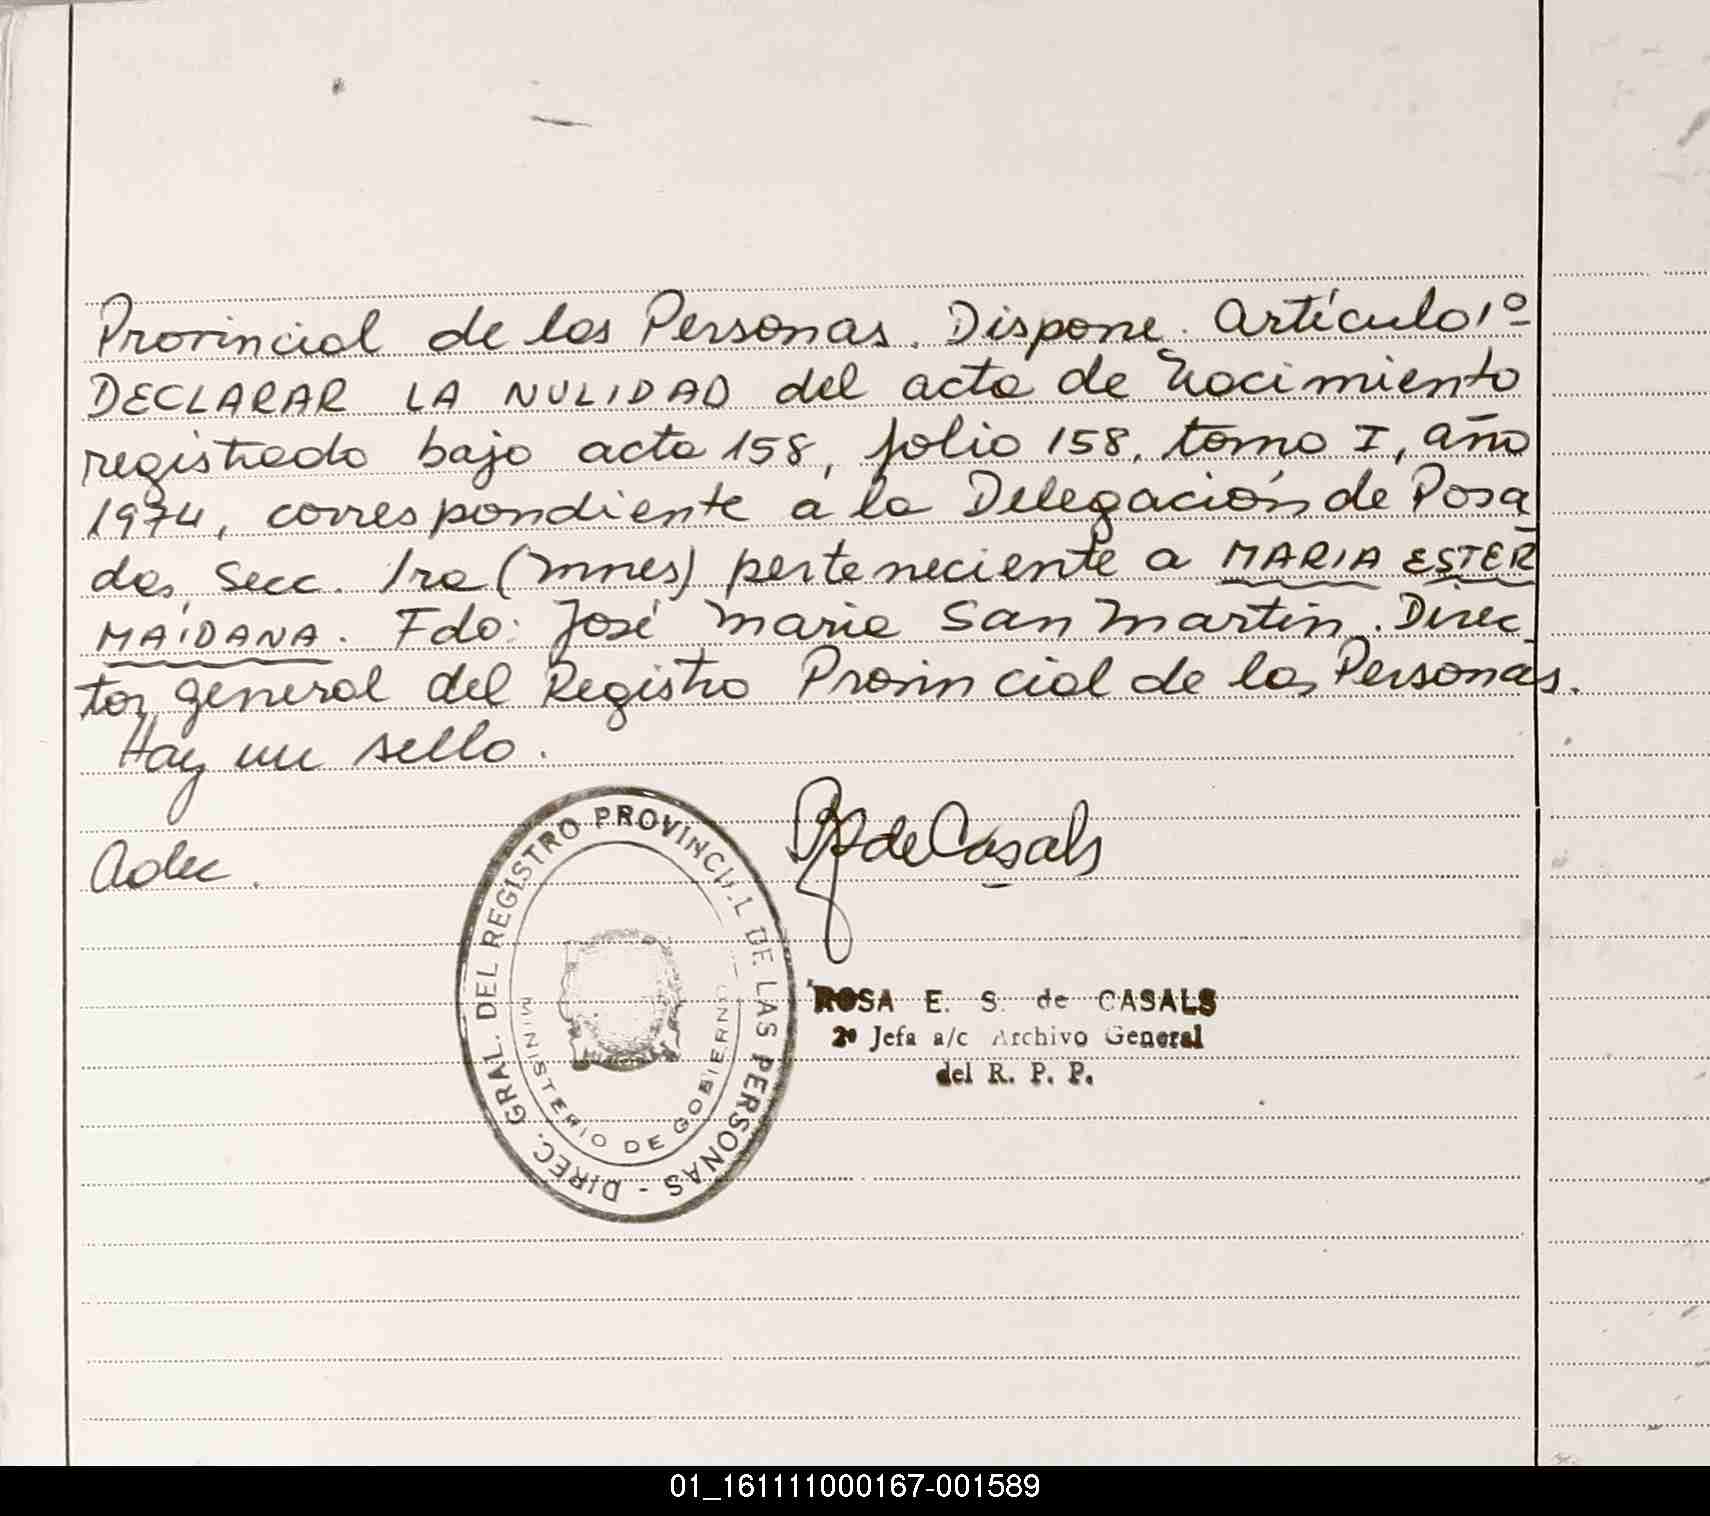 Provincial de las Personas. Dispone. Artículo 1º
DECLARAR LA NULIDAD del acta de Nacimiento
registrada bajo acta 158, folio 158, tomo I, año
1974, correspondiente a la Delegación de Posa_
das, Secc. 1ra (Mnes) perteneciente a MARIA ESTER
MAIDANA. Fdo: José Maria San Martin. Direc_
tor general del Registro Provincial de las Personas.
Hay un sello.
de Casals
DIREC. GRAL. DEL REGISTRO PROVINCIAL DE LAS PERSONAS -
MINISTERIO DE GOBIERNO
ROSA E. S. de CASALS
2ª Jefa a/c Archivo General
del R. P. P.
01_161111000167-001589